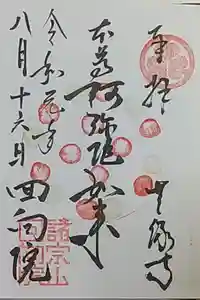 奉拝
本尊阿弥陀如来
令和元年
八月十六日
回向院
諸宗山